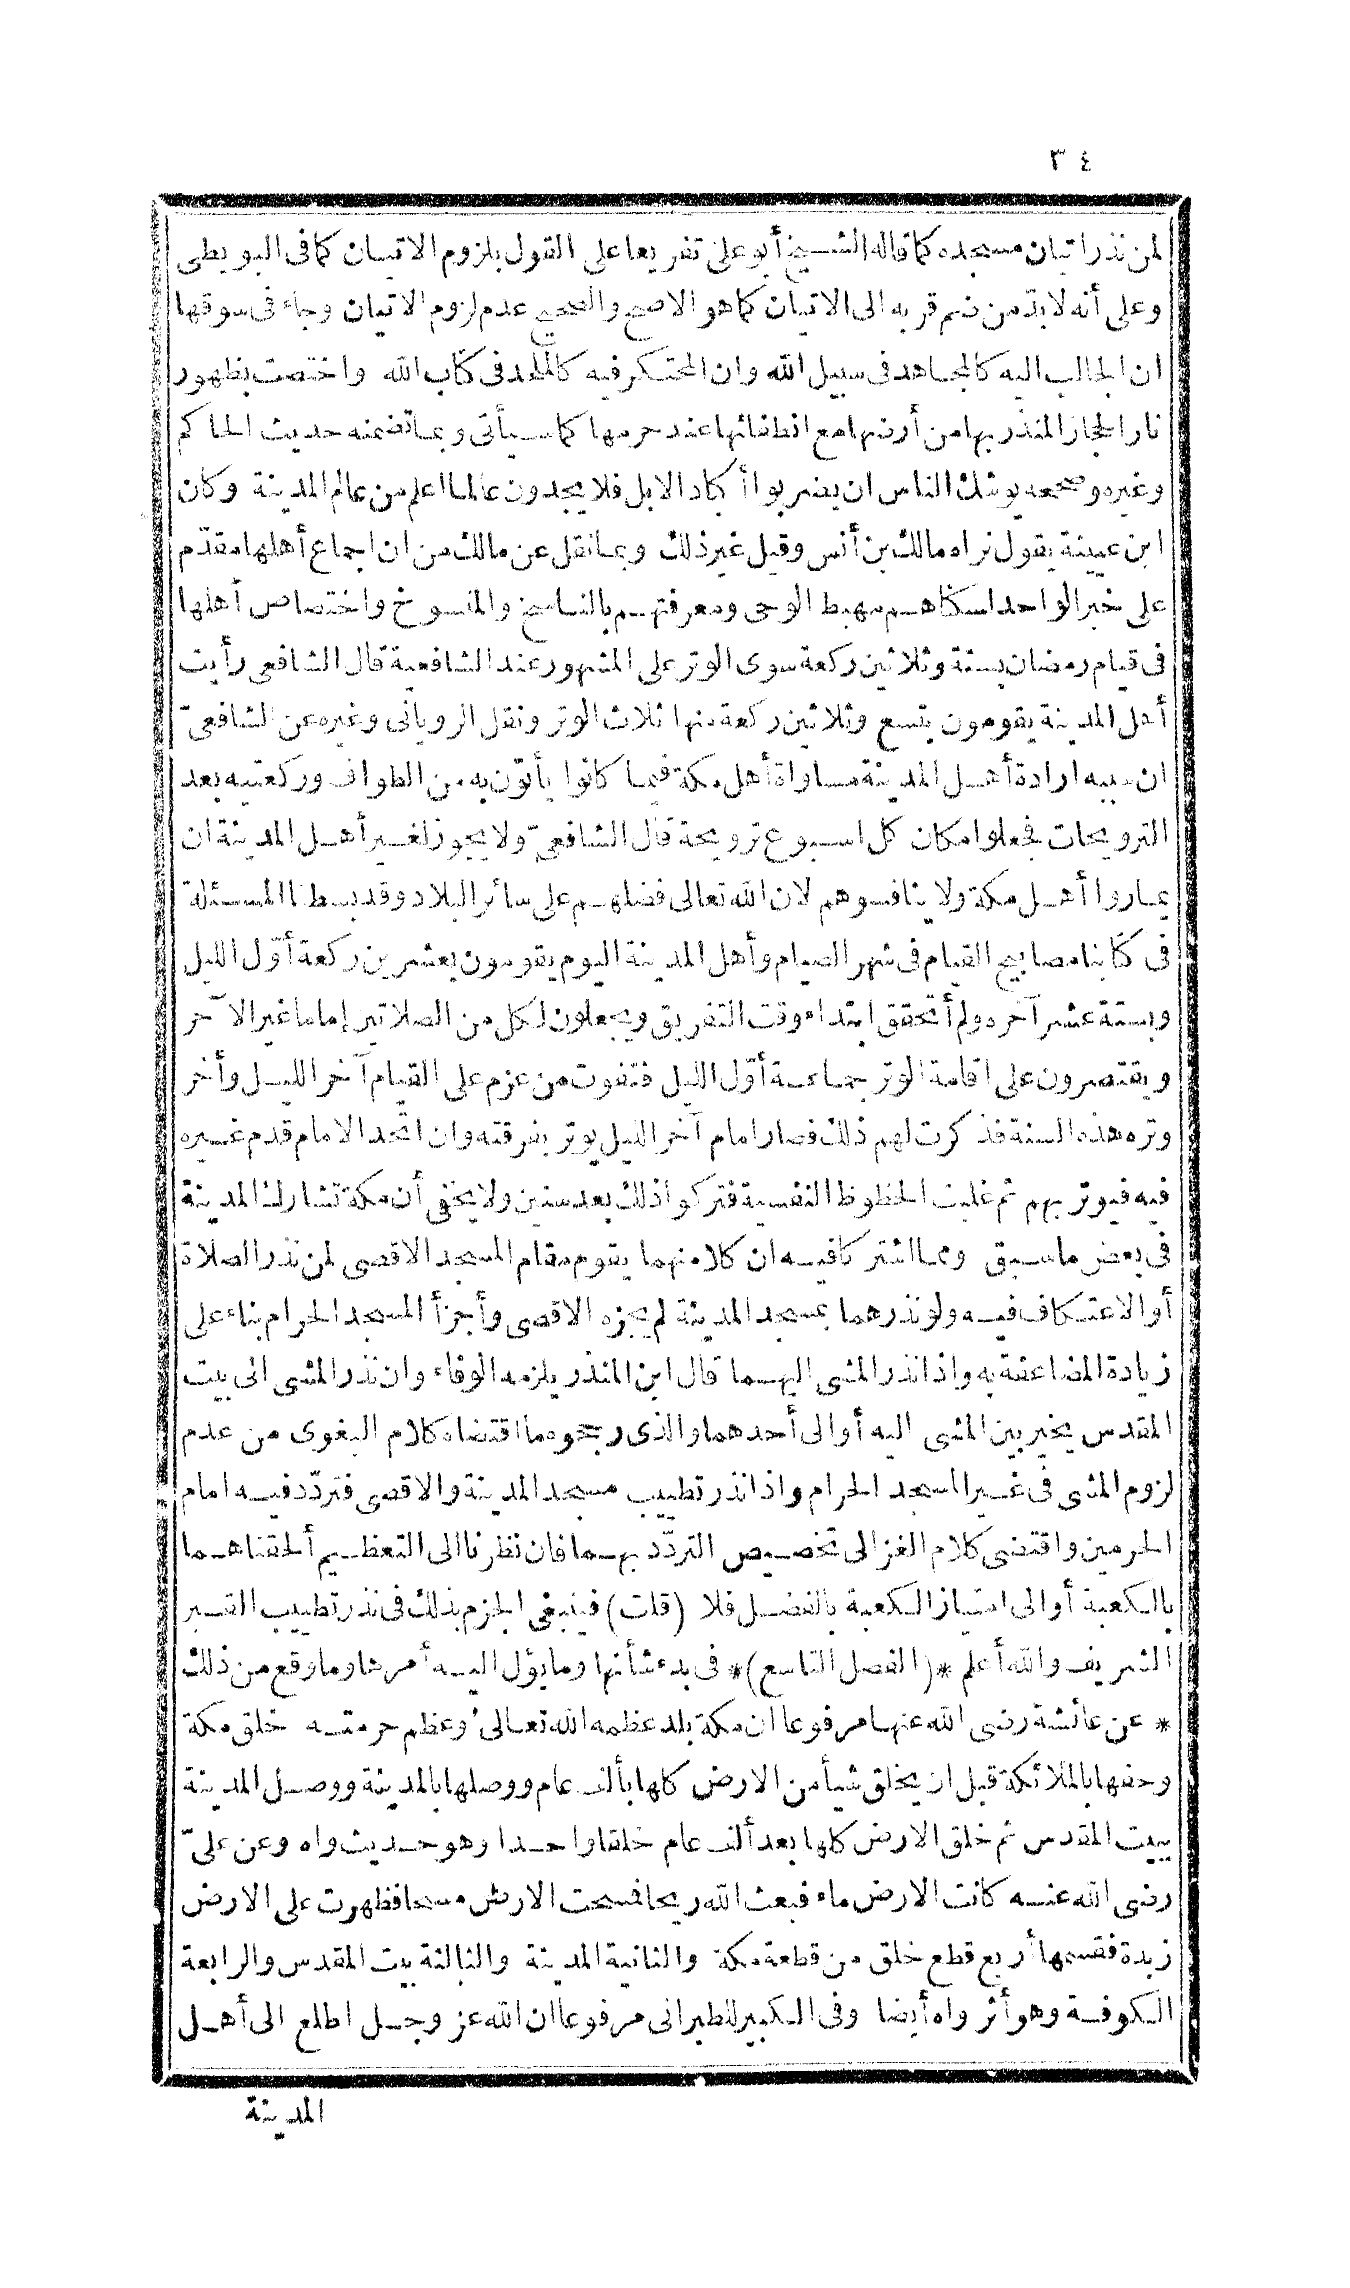 ٣٤
لمن نذر اتيان مسجده كما قاله الشيخ أبو على تفريعا على القول بلزوم الاتيان كما فى البويطى
وعلى أنه لا بدّ من ضم قربه الى الاتيان كما هو الاصح والصحيح عدم لزوم الاتيان وجاء فى سوقها
ان الجالب اليه كالمجاهد فى سبيل الله وان المحتكر فيه كالملحد فى كتاب الله واختصت بظهور
نار الحجاز المنذر بها من أرضها مع انطفائها عند حرمها كما سيأتى وبما تضمنه حديث الحاكم
وغيره وصححه يوشك الناس ان يضربوا أكباد الابل فلا يجدون عالما اعلم من عالم المدينة وكان
ابن عيينة يقول نراه مالك بن أنس وقيل غير ذلك وبما نقل عن مالك من ان اجماع أهلها مقدّم
على خبر الواحد لسكناهم مهبط الوحى ومعرفتهم بالناسخ والمنسوخ واختصاص أهلها
فى قيام رمضان بستة وثلاثين ركعة سوى الوتر على المشهور عند الشافعية قال الشافعى رأيت
أهل المدينة يقومون بتسع وثلاثين ركعة منها ثلاث الوتر ونقل الرويانى وغيره عن الشافعىّ
ان سببه ارادة أهل المدينة مساواة أهل مكة فيما كانوا يأتون به من الطواف وركعتيه بعد
الترويحات فجعلوا مكان كل اسبوع ترويحة قال الشافعىّ ولا يجوز لغير أهل المدينة ان
يماروا أهل مكة ولا ينافسوهم لان الله تعالى فضلهم على سائر البلاد وقد بسطنا المسئلة
فى كتابنا مصابيح القيام فى شهر الصيام وأهل المدينة اليوم يقومون بعشرين ركعة أوّل الليل
وبستة عشر آخره ولم أتحقق ابتداء وقت التفريق ويجعلون لكل من الصلاتين إماما غير الآخر
ويقتصرون على اقامة الوتر جماعة أوّل الليل فتفوت من عزم على القيام آخر الليل وأخر
وتره هذه السنة فذكرت لهم ذلك فصار امام آخر الليل يوتر بفرقته وان اتحد الامام قدم غيره
فيه فيوتر بهم ثم غلبت الحظوظ النفسية فتركوا ذلك بعد سنين ولا يخفى أن مكة تشارك المدينة
فى بعض ما سبق ومما اشتركا فيه ان كلا منهما يقوم مقام المسجد الاقصى لمن نذر الصلاة
أو الاعتكاف فيه ولو نذرهما بمسجد المدينة لم يجزه الاقصى وأجزأ المسجد الحرام بناء على
زيادة المضاعفة به واذا نذر المشى اليهما قال ابن المنذر يلزمه الوفاء وان نذر المشى الى بيت
المقدس يخير بين المشى اليه أو الى أحدهما والذى رجحوه ما اقتضاه كلام البغوى من عدم
لزوم المشى فى غير المسجد الحرام واذا نذر تطييب مسجد المدينة والاقصى فتردّد فيه امام
الحرمين واقتضى كلام الغزالى تخصيص التردّد بهما فان نظرنا الى التعظيم ألحقناهما
بالكعبة أو الى امتياز الكعبة بالفضل فلا (قلت) فينبغى الجزم بذلك فى نذر تطييب القبر
الشريف والله أعلم *(الفصل التاسع)* فى بدء شأنها وما يؤل اليه أمرها وما وقع من ذلك
* عن عائشة رضى الله عنها مرفوعا ان مكة بلد عظمه الله تعالى وعظم حرمته خلق مكة
وحفها بالملائكة قبل ان يخلق شيأ من الارض كلها بألف عام ووصلها بالمدينة ووصل المدينة
ببيت المقدس ثم خلق الارض كلها بعد ألف عام خلقا واحدا وهو حديث واه وعن علىّ
رضى الله عنه كانت الارض ماء فبعث الله ريحا فمسحت الارض مسحا فظهرت على الارض
زبدة فقسمها أربع قطع خلق من قطعة مكة والثانية المدينة والثالثة بيت المقدس والرابعة
الكوفة وهو أثر واه أيضا وفى الكبير للطبرانى مرفوعا ان الله عز وجل اطلع الى أهل
المدينة